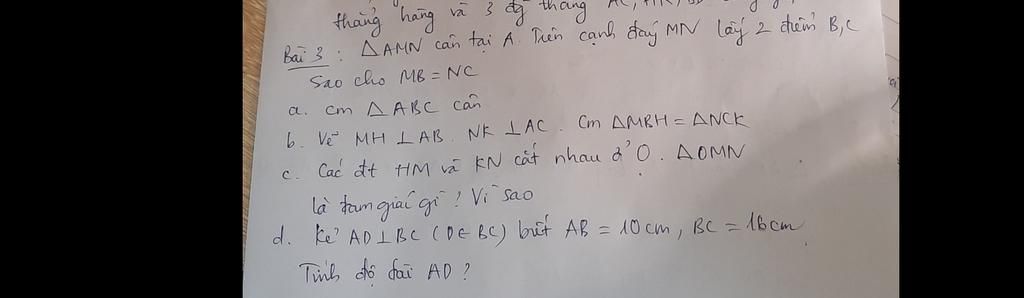 thẳng hàng và 3 đg thẳng AC,
Bài 3 : △AMN cân tại A. Trên cạnh đáy MN lấy 2 điểm B, C
Sao cho MB = NC
a. cm △ABC cân
b. Vẽ MH ⊥ AB. NK ⊥ AC. Cm △MBH = △NCK
c. Các đt HM và KN cắt nhau ở O. △OMN
là tam giác gì ? Vì sao
d. Kẻ AD ⊥ BC (D ∈ BC) biết AB = 10 cm, BC = 16 cm
Tính độ dài AD ?